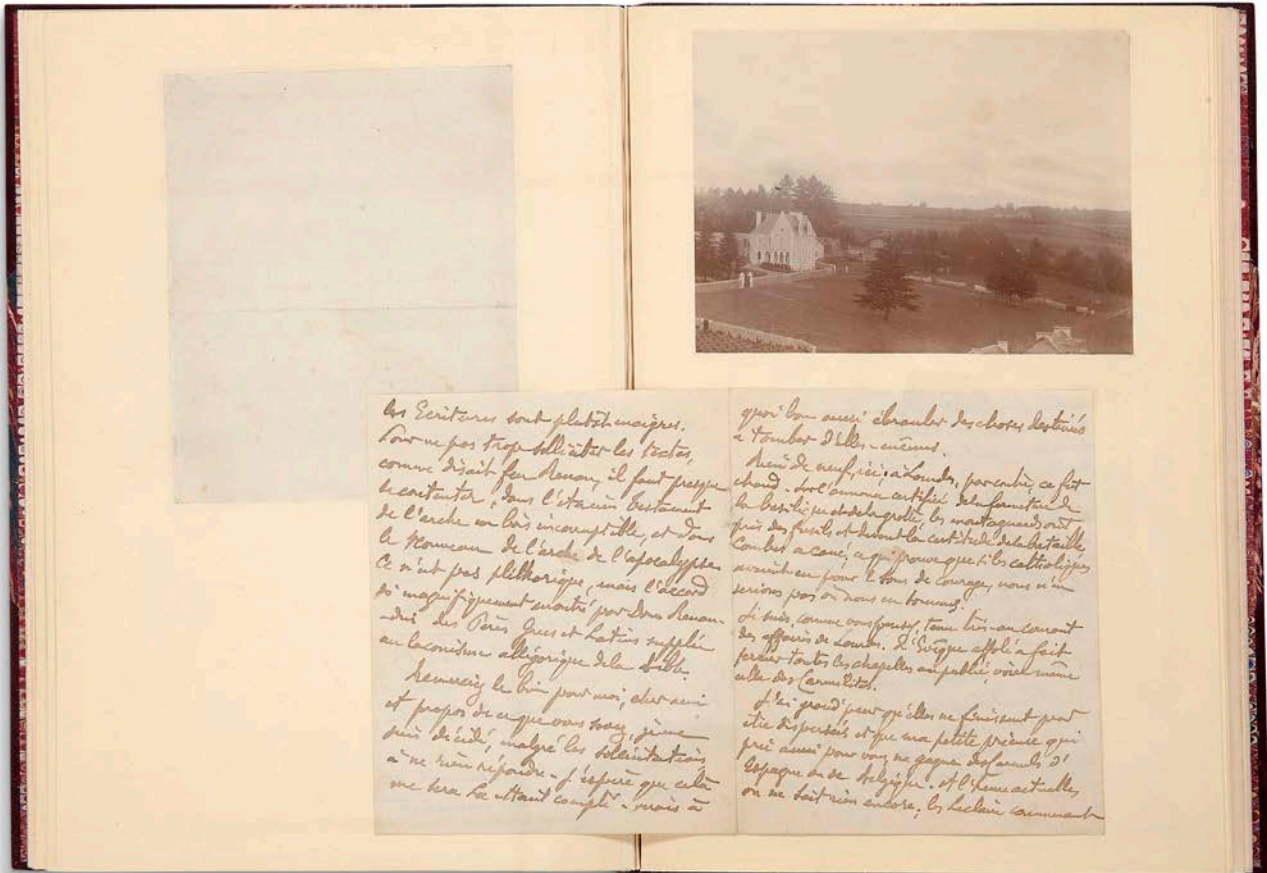 les Ecritures sont plutôt maigres.
Pour ne pas trop solliciter les textes,
comme disait feu Renan, il faut presque
se contenter, dans l'ancien testament
de l'arche en bois incorruptible, et dans
le Nouveau de l'arche de l'apocalypse
Ce n'est pas pléthorique, mais l'accord
si magnifiquement montré par Dom Renau-
-din des Pères Grecs et Latins supplée
au laconisme allégorique de la Bible.
Remerciez le bien pour moi, cher ami
et à propos de ce que vous savez, je me
suis décidé, malgré les sollicitations
à ne rien répondre - j'espère que cela
me sera là-haut compté - mais à
quoi bon aussi ébranler des choses destinées
à tomber d'elles-mêmes.
Rien de neuf, ici; à Lourdes, par contre, ce fut
chaud. Sur l'annonce certifiée de la fermeture de
la basilique et de la grotte, les montagnards ont
pris des fusils et devant la certitude de la bataille,
Combes a cané, ce qui prouve que si les catholiques
avaient eu pour 2 sous de courage, nous n'en
serions pas où nous en sommes.
Je suis, comme vous pensez, tenu très-au courant
des affaires de Lourdes. L'Evêque affolé a fait
fermer toutes les chapelles au public, voire même
celle des Carmélites.
J'ai grand peur qu'elles ne finissent par
être dispersées et que ma petite prieure qui
prie aussi pour vous ne gagne des Carmels d'
Espagne ou de Belgique. - à l'heure actuelle
on ne sait rien encore; les Leclaire